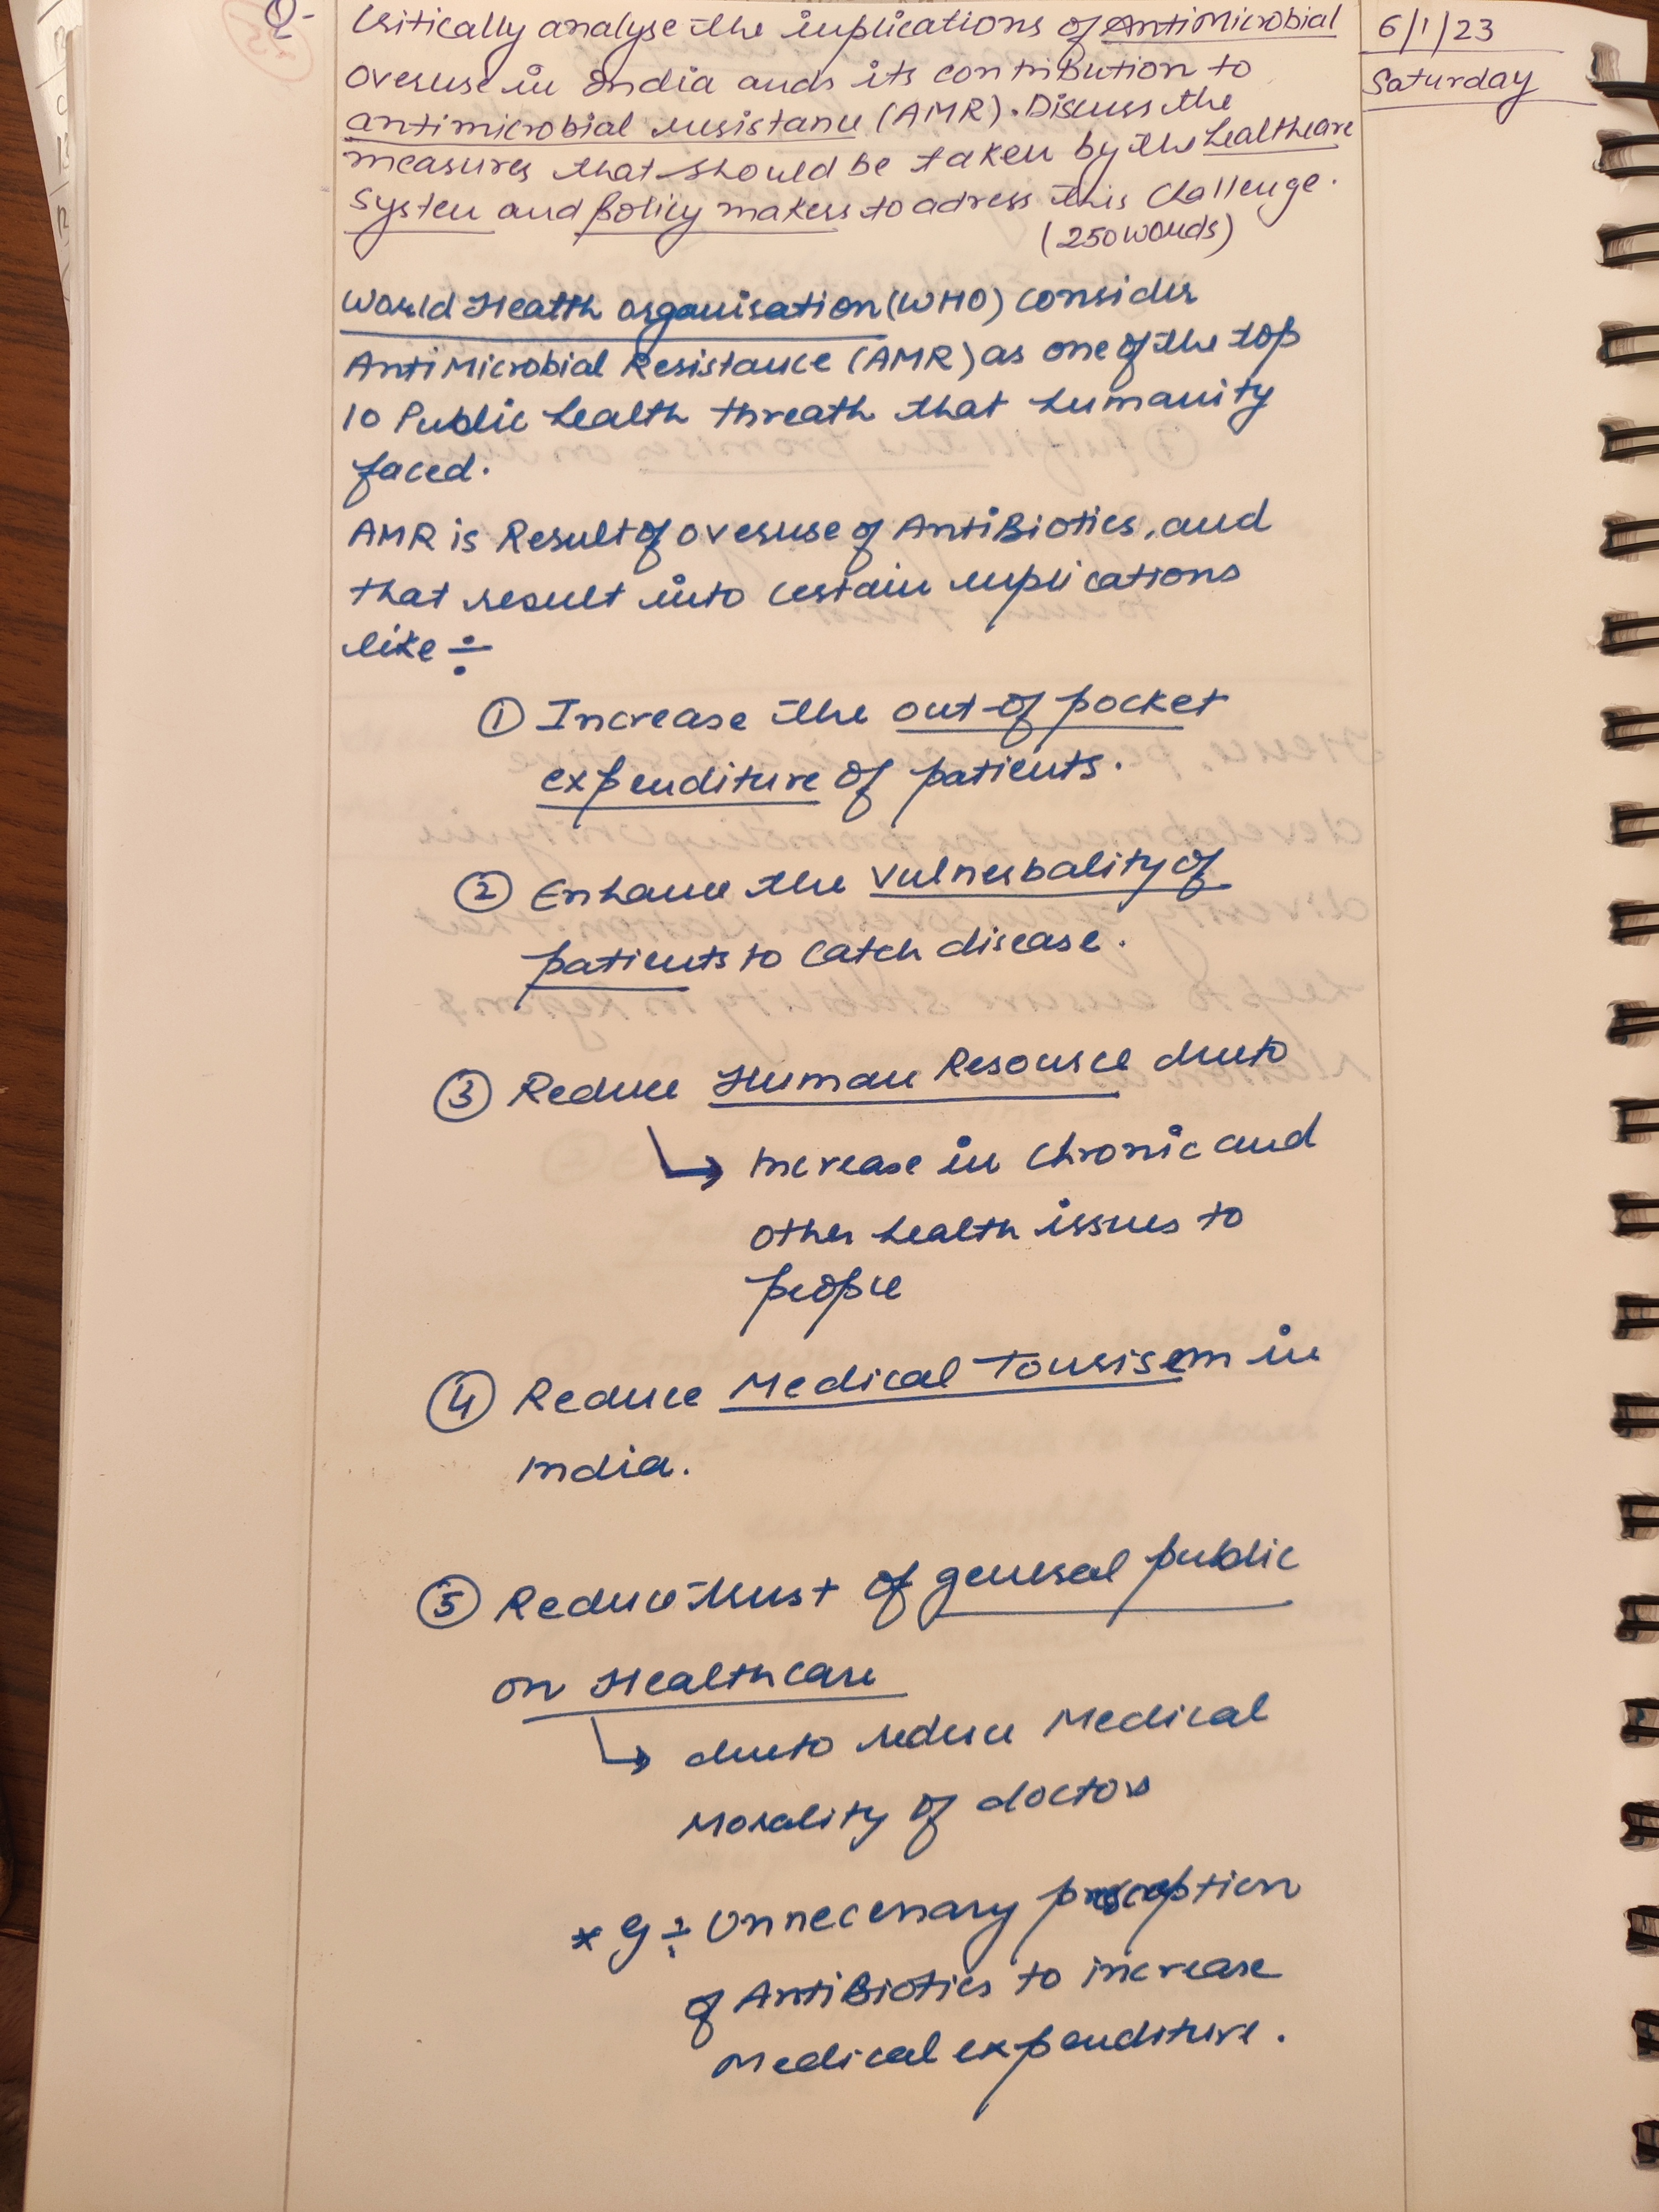 Q- Critically analyse the implications of AntiMicrobial
overuse in India and its contribution to
antimicrobial resistance (AMR). Discuss the
measures that should be taken by the healthcare
System and policy makers to adress this challenge.
(250 words)
6/1/23
Saturday
World Health Organisation (WHO) consider
AntiMicrobial Resistance (AMR) as one of the top
10 Public health threath that humanity
faced.
AMR is Result of overuse of AntiBiotics, and
that result into certain implications
like ÷
① Increase the out of pocket
expenditure of patients.
② Enhance the vulnerbality of
patients to catch disease.
③ Reduce Human Resource due to
↳ increase in chronic and
other health issues to
people
④ Reduce Medical Tourisem in
india.
⑤ Reduce trust of general public
on Healthcare
↳ due to reduce Medical
Morality of doctors
* g ÷ Unnecessary
of AntiBiotics to increase
Medical expenditure.